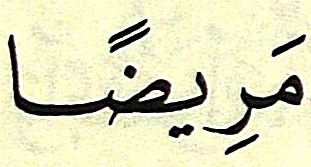 مَرِيضًا